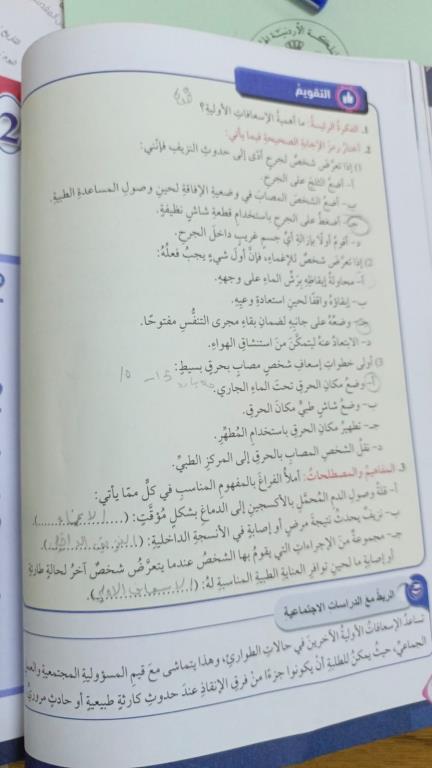 التقويم
1. الفكرة الرئيسة: ما أهمية الإسعافات الأولية؟
2. أختار رمز الإجابة الصحيحة فيما يأتي:
1) إذا تعرض شخص لجرح أدى إلى حدوث النزيف فإنني:
أ- أضع الثلج على الجرح.
ب- أضع الشخص المصاب في وضعية الإفاقة لحين وصول المساعدة الطبية.
جـ- أضغط على الجرح باستخدام قطعة شاش نظيفة.
د- أقوم أولًا بإزالة أي جسم غريب داخل الجرح.
2) إذا تعرض شخص للإغماء، فإن أول شيء يجب فعله:
أ- محاولة إيقاظه برش الماء على وجهه.
ب- إبقاؤه واقفًا لحين استعادة وعيه.
جـ- وضعه على جانبه لضمان بقاء مجرى التنفس مفتوحًا.
د- الابتعاد عنه ليتمكن من استنشاق الهواء.
3) أولى خطوات إسعاف شخص مصاب بحرق بسيط:
أ- وضع مكان الحرق تحت الماء الجاري. 10 - 15 دقيقة
ب- وضع شاش طبي مكان الحرق.
جـ- تطهير مكان الحرق باستخدام المطهر.
د- نقل الشخص المصاب بالحرق إلى المركز الطبي.
3. المفاهيم والمصطلحات: أملأ الفراغ بالمفهوم المناسب في كل مما يأتي:
أ- قلة وصول الدم المحمل بالأكسجين إلى الدماغ بشكل مؤقت: (الإغماء).
ب- نزيف يحدث نتيجة مرض أو إصابة في الأنسجة الداخلية: (النزيف الداخلي).
جـ- مجموعة من الإجراءات التي يقوم بها الشخص عندما يتعرض شخص آخر لحالة طارئة
أو إصابة ما لحين توافر العناية الطبية المناسبة له: (الإسعافات الأولية).
الربط مع الدراسات الاجتماعية
تساعد الإسعافات الأولية الآخرين في حالات الطوارئ، وهذا يتماشى مع قيم المسؤولية المجتمعية والعمل
الجماعي، حيث يمكن للطلبة أن يكونوا جزءًا من فرق الإنقاذ عند حدوث كارثة طبيعية أو حادث مروري